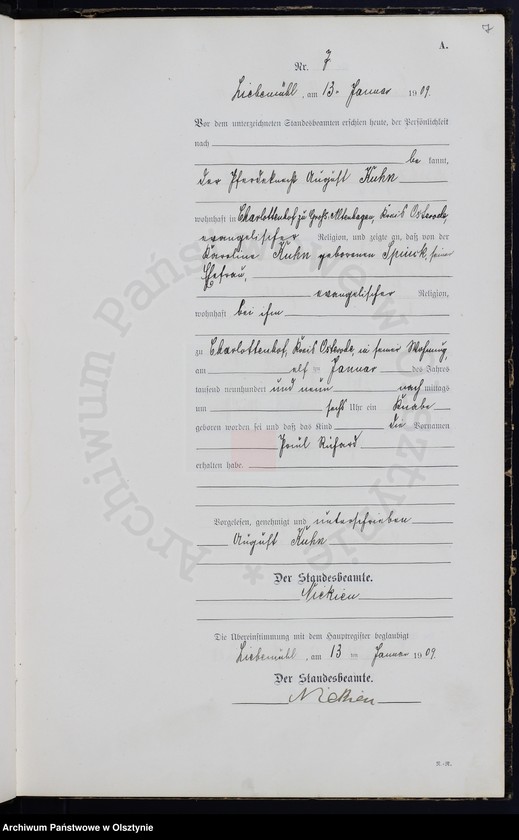 7
A.
Nr. 7
Liebemühl, am 13. Januar 1909.
Vor dem unterzeichneten Standesbeamten erschien heute, der Persönlichkeit
nach
be kannt,
der Pferdeknecht August Kuhn
wohnhaft in Charlottenhof zu Groß Altenhagen, Kreis Osterode
evangelischer Religion, und zeigte an, daß von der
Karoline Kuhn geborenen Spinck, seiner
Ehefrau,
evangelischer Religion,
wohnhaft bei ihm
zu Charlottenhof, Kreis Osterode, in seiner Wohnung,
am elf ten Januar des Jahres
tausend neunhundert und neun nach mittags
um sechs Uhr ein Knabe
geboren worden sei und daß das Kind die Vornamen
Paul Richard
erhalten habe.
Vorgelesen, genehmigt und unterschrieben
August Kuhn
Der Standesbeamte.
Die Übereinstimmung mit dem Hauptregister beglaubigt
Liebemühl, am 13 ten Januar 1909.
Der Standesbeamte.
Archiwum Państwowe w Olsztynie
Archiwum Państwowe w Olsztynie